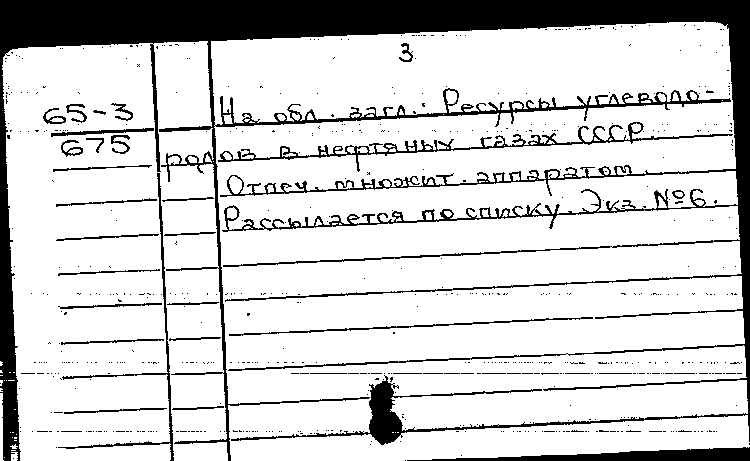 3
65-3
675
На обл. загл.: Ресурсы углеводо-
родов в нефтяных газах СССР.
Отпеч. множит. аппаратом.
Рассылается по списку. Экз. №6.